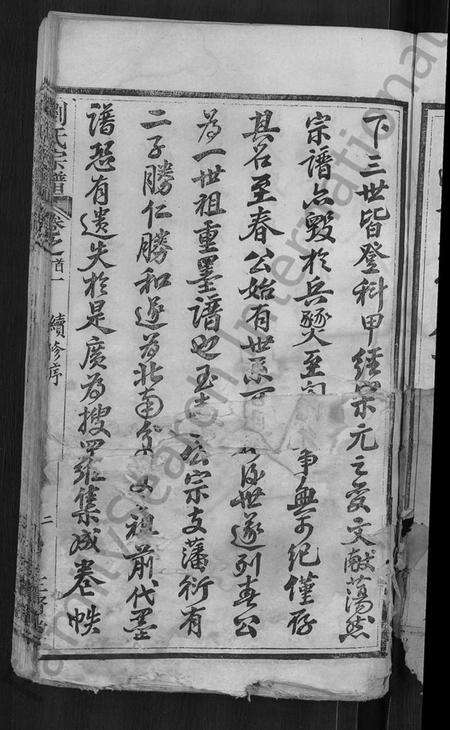 下三世皆登科甲經宋元之變文獻蕩然
宗譜亦毀於兵燹至 事無可紀僅存
其名至春公始有世系可 後世遂列春公
為一世祖重墨譜也 公宗支藩衍有
二子勝仁勝和遂為北南 祖前代墨
譜恐有遺失於是廣為搜羅集成卷帙
劉氏宗譜
卷之首一
續修序
二
FamilySearch International